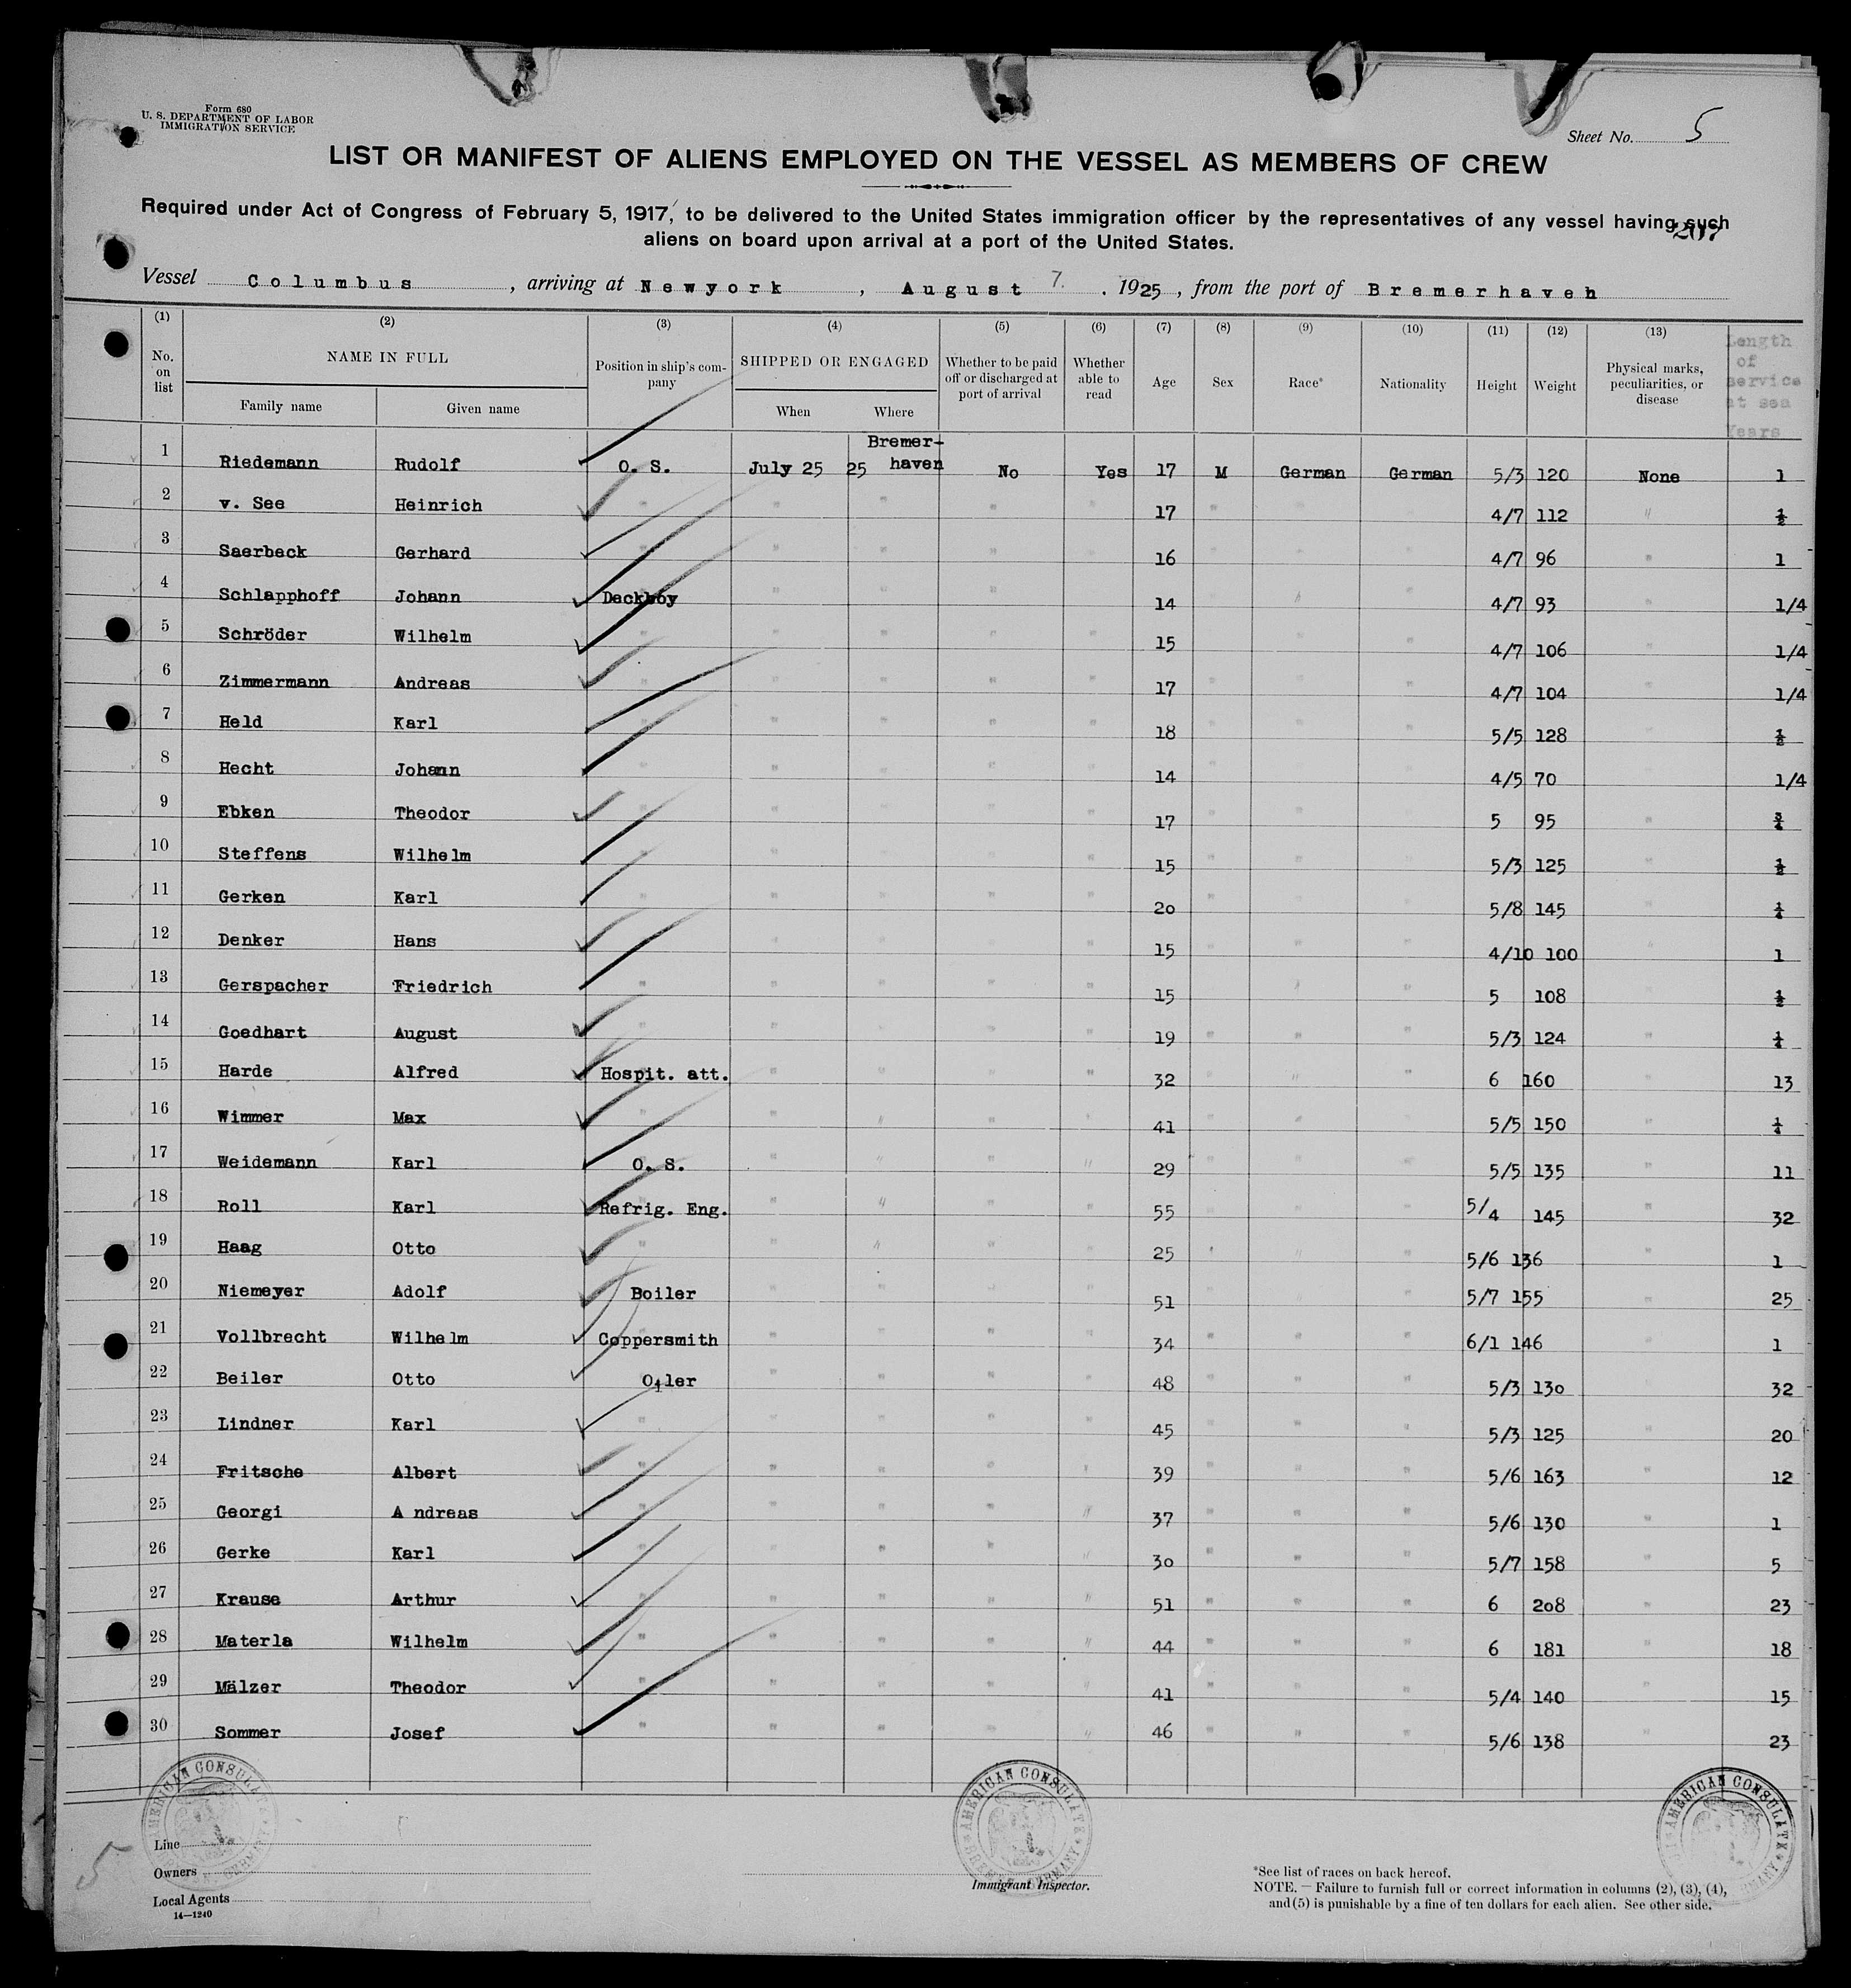 Form 680
U. S. DEPARTMENT OF LABOR
IMMIGRATION SERVICE
Sheet No. 5
LIST OR MANIFEST OF ALIENS EMPLOYED ON THE VESSEL AS MEMBERS OF CREW
Required under Act of Congress of February 5, 1917, to be delivered to the United States immigration officer by the representatives of any vessel having such
aliens on board upon arrival at a port of the United States.
207
Vessel Columbus, arriving at Newyork, August 7. . 1925, from the port of Bremerhaven
(1) (2) (3) (4) (5) (6) (7) (8) (9) (10) (11) (12) (13)
No. on list
NAME IN FULL
Family name Given name
Position in ship's company
SHIPPED OR ENGAGED
When Where
Whether to be paid off or discharged at port of arrival
Whether able to read
Age Sex Race* Nationality Height Weight
Physical marks, peculiarities, or disease
Length of service at sea Years
1 Riedemann Rudolf O. S. July 25 25 Bremer-haven No Yes 17 M German German 5/3 120 None 1
2 v. See Heinrich " " " " " 17 " " " 4/7 112 " ½
3 Saerbeck Gerhard " " " " " 16 " " " 4/7 96 " 1
4 Schlapphoff Johann Deckboy " " " " 14 " " " 4/7 93 " 1/4
5 Schröder Wilhelm " " " " " 15 " " " 4/7 106 " 1/4
6 Zimmermann Andreas " " " " " 17 " " " 4/7 104 " 1/4
7 Held Karl " " " " " 18 " " " 5/5 128 " ½
8 Hecht Johann " " " " " 14 " " " 4/5 70 " 1/4
9 Ebken Theodor " " " " " 17 " " " 5 95 " ¾
10 Steffens Wilhelm " " " " " 15 " " " 5/3 125 " ½
11 Gerken Karl " " " " " 20 " " " 5/8 145 " ¼
12 Denker Hans " " " " " 15 " " " 4/10 100 " 1
13 Gerspacher Friedrich " " " " " 15 " " " 5 108 " ½
14 Goedhart August " " " " " 19 " " " 5/3 124 " ¼
15 Harde Alfred Hospit. att. " " " " 32 " " " 6 160 " 13
16 Wimmer Max " " " " " 41 " " " 5/5 150 " ¼
17 Weidemann Karl O. S. " " " " 29 " " " 5/5 135 " 11
18 Roll Karl Refrig. Eng. " " " " 55 " " " 5/4 145 " 32
19 Haag Otto " " " " " 25 " " " 5/6 136 " 1
20 Niemeyer Adolf Boiler " " " " 51 " " " 5/7 155 " 25
21 Vollbrecht Wilhelm Coppersmith " " " " 34 " " " 6/1 146 " 1
22 Beiler Otto Oiler " " " " 48 " " " 5/3 130 " 32
23 Lindner Karl " " " " " 45 " " " 5/3 125 " 20
24 Fritsche Albert " " " " " 39 " " " 5/6 163 " 12
25 Georgi A ndreas " " " " " 37 " " " 5/6 130 " 1
26 Gerke Karl " " " " " 30 " " " 5/7 158 " 5
27 Krause Arthur " " " " " 51 " " " 6 208 " 23
28 Materla Wilhelm " " " " " 44 " " " 6 181 " 18
29 Mälzer Theodor " " " " " 41 " " " 5/4 140 " 15
30 Sommer Josef " " " " " 46 " " " 5/6 138 " 23
AMERICAN CONSULATE GERMANY
AMERICAN CONSULATE GERMANY
AMERICAN CONSULATE
5
Line
Owners
Local Agents
14—1240
Immigrant Inspector.
*See list of races on back hereof.
NOTE. — Failure to furnish full or correct information in columns (2), (3), (4),
and (5) is punishable by a fine of ten dollars for each alien. See other side.